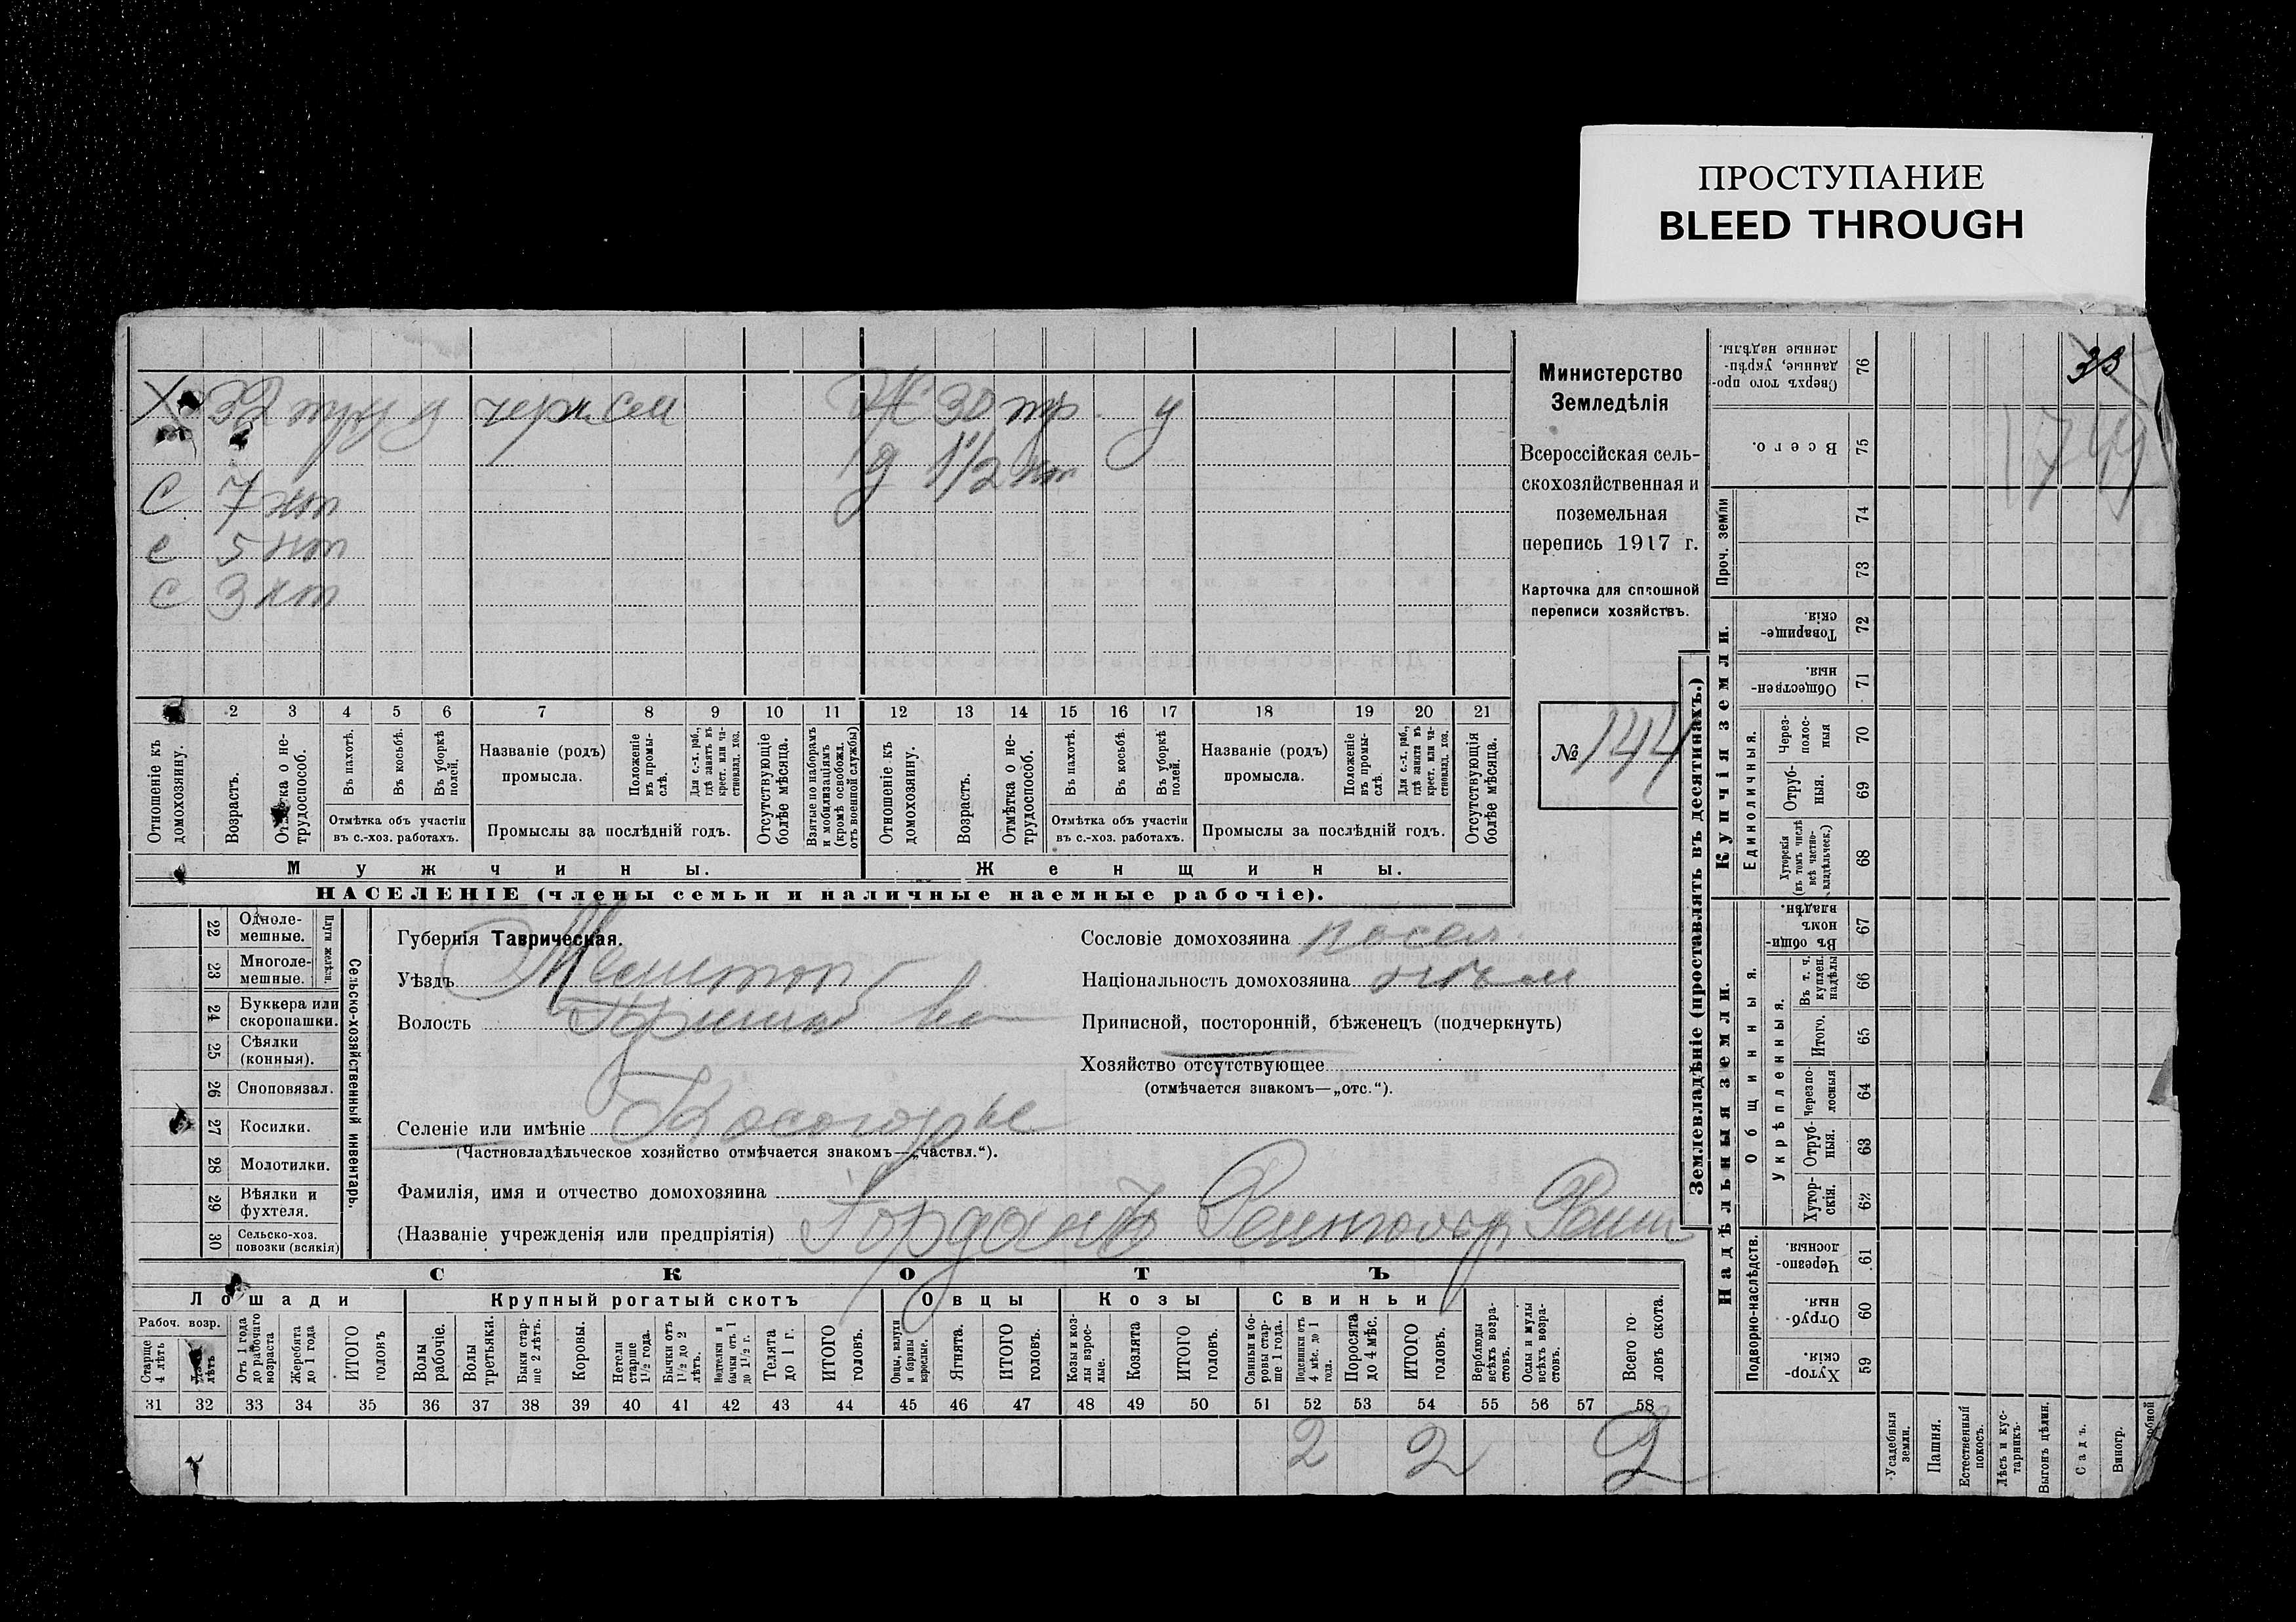 ПРОСТУПАНИЕ
BLEED THROUGH
Х 32 тру у черн сел Ж 30 тр у
д 1 1/2 нт
С 7 нт
с 5 нт
С 3 нт
2 3 4 5 6 7 8 9 10 11 12 13 14 15 16 17 18 19 20 21
Отношеніе къ домохозяину.
Возрастъ.
Отмѣтка о нетрудоспособ.
Въ пахотѣ.
Въ косьбѣ.
Въ уборкѣ полей.
Отмѣтка объ участіи въ с.-хоз. работахъ.
Названіе (родъ) промысла.
Положеніе въ промыслѣ.
Для с.-х. раб., гдѣ занятъ въ крест. или частновлад. хоз.
Промыслы за послѣдній годъ.
Отсутствующіе болѣе мѣсяца.
Взятые по наборамъ и мобилизаціямъ (кромѣ освобожд. отъ военной службы)
Отношеніе къ домохозяину.
Возрастъ.
Отмѣтка о нетрудоспособ.
Въ пахотѣ.
Въ косьбѣ.
Въ уборкѣ полей.
Отмѣтка объ участіи въ с.-хоз. работахъ.
Названіе (родъ) промысла.
Положеніе въ промыслѣ.
Для с.-х. раб., гдѣ занята въ крест. или частновлад. хоз.
Промыслы за послѣдній годъ.
Отсутствующія болѣе мѣсяца.
Мужчины.
Женщины.
НАСЕЛЕНІЕ (члены семьи и наличные наемные рабочіе).
Министерство
Земледѣлія
Всероссійская сель-
скохозяйственная и
поземельная
перепись 1917 г.
Карточка для сплошной
переписи хозяйствъ.
№ 144
22 Одноле-мешные.
23 Многоле-мешные.
Плуги желѣзн.
24 Буккера или скоропашки.
25 Сѣялки (конныя).
26 Сноповязал.
27 Косилки.
28 Молотилки.
29 Вѣялки и фухтеля.
30 Сельско-хоз. повозки (всякія)
Сельско-хозяйственный инвентарь.
Губернія Таврическая.
Уѣздъ Мелитоп
Волость Пришиб во
Селеніе или имѣніе Косогорье
(Частновладѣльческое хозяйство отмѣчается знакомъ—„частвл.“).
Фамилія, имя и отчество домохозяина
(Названіе учрежденія или предпріятія) Горданъ Рейнголд Рейн
Сословіе домохозяина посел.
Національность домохозяина нѣм
Приписной, посторонній, бѣженец (подчеркнуть)
Хозяйство отсутствующее
(отмѣчается знакомъ—„отс.“).
СКОТЪ
Лошади
Крупный рогатый скотъ
Овцы
Козы
Свиньи
Рабоч. возр.
Старше 4 лѣтъ
лѣтъ
Отъ 1 года до рабочаго возраста
Жеребята до 1 года
ИТОГО головъ
Волы рабочіе.
Волы третьяки.
Быки старше 2 лѣтъ.
Коровы.
Нетели старше 1 1/2 года.
Бычки отъ 1 1/2 до 2 лѣтъ.
бычки отъ 1 до 1 1/2 г.
Телята до 1 г.
ИТОГО головъ.
Овцы, валухи и бараны взрослые.
Ягнята.
ИТОГО головъ.
Козы и козлы взрослые.
Козлята
ИТОГО головъ.
Свиньи и боровы старше 1 года.
Подсвинки отъ 4 мѣс. до 1 года.
Поросята до 4 мѣс.
ИТОГО головъ.
Верблюды всѣхъ возрастовъ.
Ослы и мулы всѣхъ возрастовъ.
Всего головъ скота.
31 32 33 34 35 36 37 38 39 40 41 42 43 44 45 46 47 48 49 50 51 52 53 54 55 56 57 58
2 2 2
Землевладѣніе (проставлять въ десятинахъ.)
Купчія земли.
Надѣльныя земли.
Сверхъ того проданные, укрѣпленные надѣлы. 76
Всего. 75
Проч. земли 74 73
Товарищескія 72
Общественныя. 71
Единоличныя.
Черезполосныя 70
Отрубныя. 69
Хуторскія (въ томъ числѣ всѣ частновладѣльческ.) 68
Общинныя.
Въ общинномъ владѣн. 67
Укрѣпленныя.
Въ т. ч. куплен. надѣлы 66
Итого. 65
Черезполосныя 64
Отрубныя. 63
Хуторскія. 62
Подворно-наслѣдств.
Черезполосныя. 61
Отрубныя. 60
Хуторскія. 59
Усадебныя земли.
Пашня.
Естественный покосъ.
Лѣсъ и кустарникъ.
Выгонъ цѣлин.
Садъ.
Виногр.
33